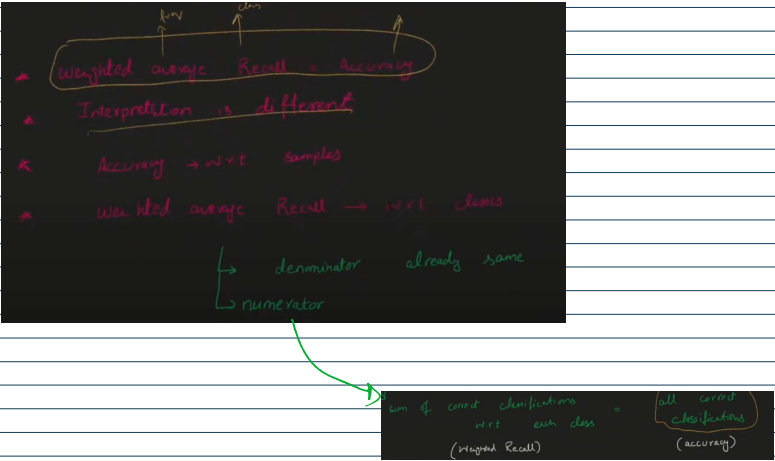 freq class
* Weighted average Recall = Accuracy
* Interpretation is different
* Accuracy → w.r.t samples
* Weighted average Recall → w.r.t classes
denominator already same
numerator
sum of correct classifications
w.r.t each class
=
all correct
classifications
(Weighted Recall)
(accuracy)